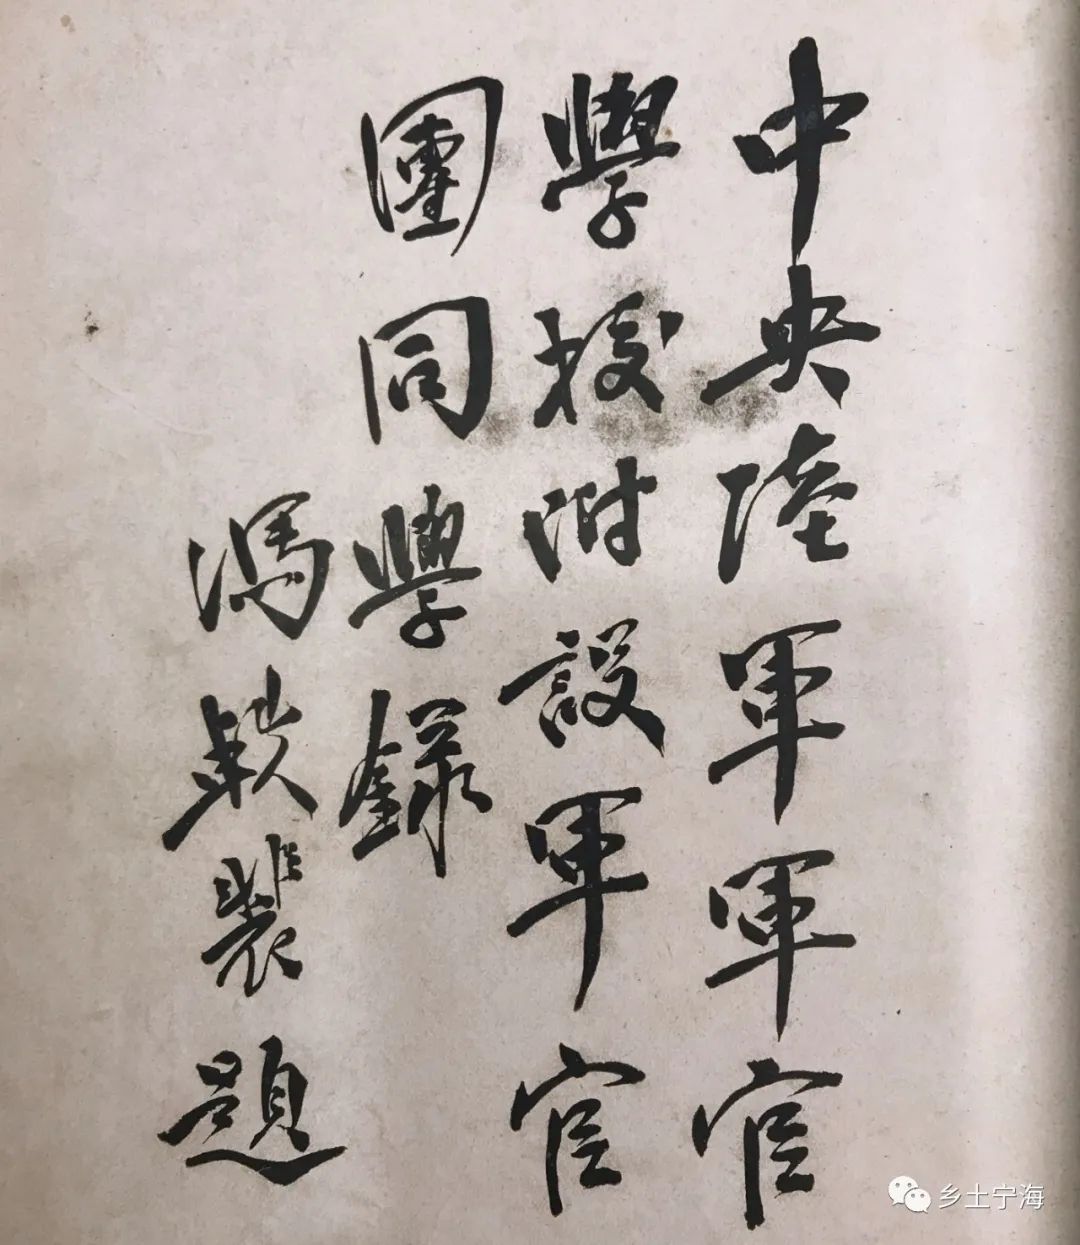 中央陸軍軍官
學校附設軍官
團同學錄
馮軼裴題
乡土宁海